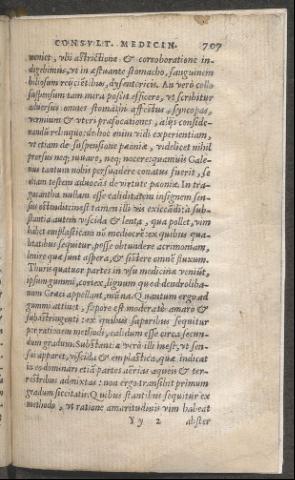 CONSVLT. MEDICIN. 707
veniet, vbi astrictione & corroboratione in-
digebimus, vt in æstuante stomacho, sanguinem
biliosum reijcientibus, dysentericis. An verò collo
suspensum tam mira possit efficere, vt scribitur
aduersus omnes stomachi affectus, syncopas,
vermium & vteri præfocationes, alijs conside-
randũ relinquo: de hoc enim vidi experientiam,
vt etiam de suspensione pæoniæ, videlicet nihil
prorsus neq; iuuare, neq; nocere: quamuis Gale-
nus tantum nobis persuadere conatus fuerit, se
etiam testem aduocãs de virtute pæoniæ. In tra-
gacantha nullam esse caliditatem insignem sen-
sus ostendit: inest tamen illi vis exiccãdi: à sub-
stantia autem viscida & lenta, qua pollet, vim
habet emplasticam nõ mediocrẽ: ex quibus qua-
litatibus sequitur, posse obtundere acrimoniam,
lenire quæ sunt aspera, & sistere omnẽ fluxum.
Thuris quatuor partes in vsu medicinæ veniũt,
ipsum gummi, cortex, lignum quod dendroliba-
num Græci appellant, mãna. Quantum ergo ad
gummi attinet, sapore est moderatè amaro &
subastringenti: ex quibus saporibus sequitur
per rationem methodi, calidum esse circa secun-
dum gradum. Substãtia verò illi inest, vt sen-
sui apparet, viscida & emplastica, quæ indicat
in eo dominari etiã partes aërias aqueis & ter-
restribus admixtas: non ergo transibit primum
gradum siccitatis. Quibus stantibus sequitur ex
methodo, vt ratione amaritudinis vim habeat
Y y 2 abster